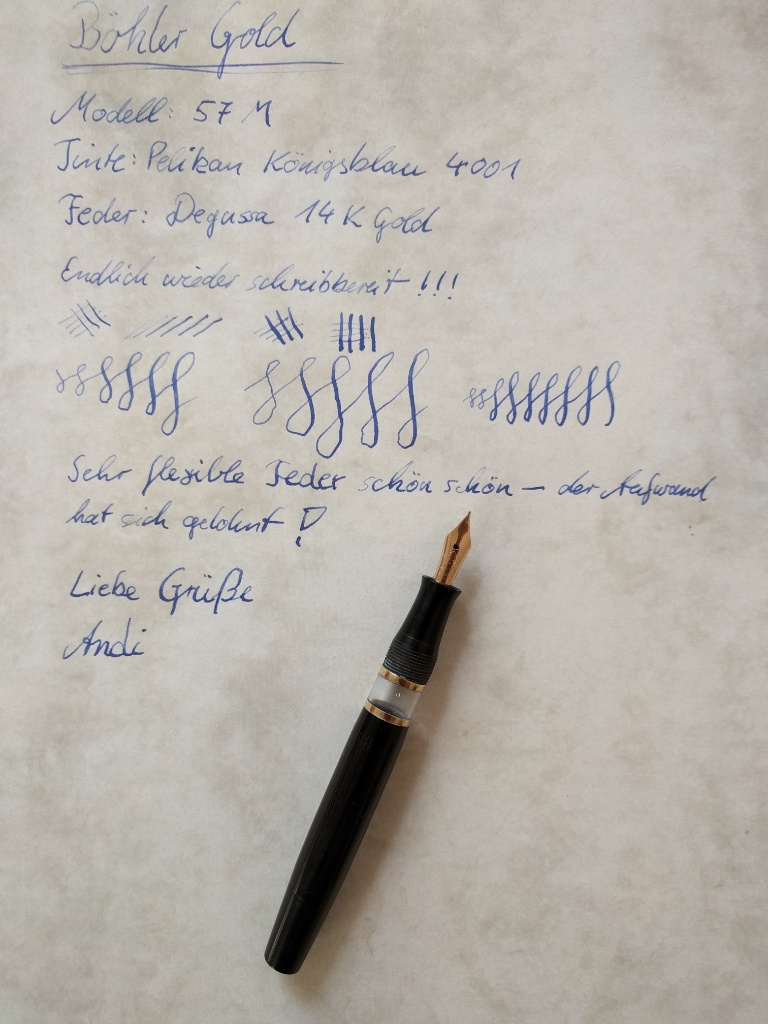 Böhler Gold
Modell: 57 M
Tinte: Pelikan Königsblau 4001
Feder: Degussa 14 K Gold
Endlich wieder schreibbereit !!!
Sehr flexible Feder schön schön – der Aufwand
hat sich gelohnt !
Liebe Grüße
Andi